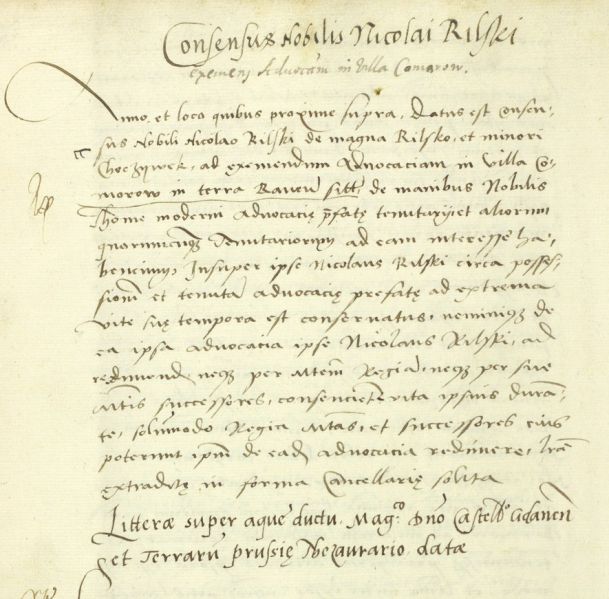 Consensus Nobilis Nicolai Rilski
eximendi Advocatiam in villa Comorow.
Anno et loco quibus proxime supra, Datus est Consen-
sus Nobili Nicolao Rilski de magna Rilsko, et minori
ad eximendum Advocaciam in villa Co-
morow in terra Raven̄ sitt̄ de manibus Nobilis
Thome moderni Advocacię p̄fatę tenutarij et aliorum
quorumcūqz Tenutariorum ad eam interesse ha-
bencium, Insuper ipse Nicolaus Rilski circa posses-
sionē et tenutā advocacię prefatę ad extrema
vite suę tempora est conservatus, neminiqz de
ea ipsa advocacia ipse Nicolaus Rilski, ad
redimend neqz per Mtem̄ Regiā, neqz per sue
Mtis successores, consencietr̄ vita ipsius duran-
te, solūmodo Regia Mtas, et successores eius
poterunt ipm̄ de eadē advocacia redimere, Lrae
extraditę in forma Cancellarię solita
Litterae super aque ductu, Mag.co Dn̄o Castelł.o Gdanen̄
et Terrarū prussię Thezaurario, datae